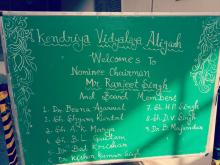 Kendriya Vidyalaya Aligarh
Welcomes To
Nominee Chairman
Mr Ranjeet Singh
And Board Members
1. Dr Beena Agarwal
2. Sh. Shyam Kuntal
3. Sh. A.K. Maurya
4. Sh. B.L. Gautam
5. Dr. Bed
6. Dr. Kishan Kumar Singh
7. Sh. H.P. Singh
8. Sh. D.V. Singh
9. Dr. B.